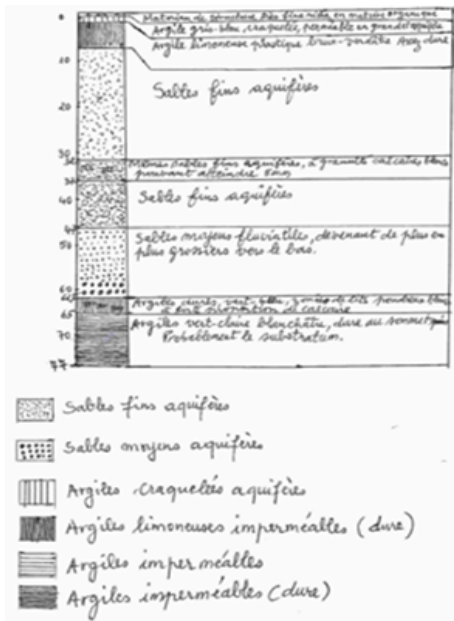 0
Matériau de structure très fine riche en matière organique
Argile gris-bleu, craquelée, perméable en grand
Argile limoneuse plastique brun-verdâtre Assez dure
10
Sables fins aquifères
20
30
Mêmes sables fins aquifères, à granules calcaires blancs
pouvant atteindre
Sables fins aquifères
40
Sables moyens fluviatiles, devenant de plus en
plus grossiers vers le bas.
50
60
Argiles dures, vert-bleu, de lits poudreux blancs
à forte proportion de calcaire
65
Argiles vert-claire blanchâtre, dure au sommet
Probablement le substratum.
70
77
Sables fins aquifères
Sables moyens aquifères
Argiles craquelées aquifères
Argiles limoneuses imperméables (dure)
Argiles imperméables
Argiles imperméables (dure)